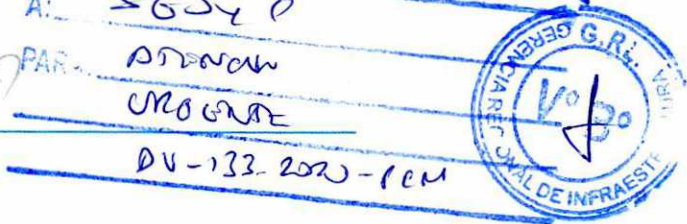 A: SGSyL
PAR. ATENCION
URGENTE
DU-133-2020-PCM
G.R.L.
GERENCIA REGIONAL DE INFRAESTRUCTURA
V° B°